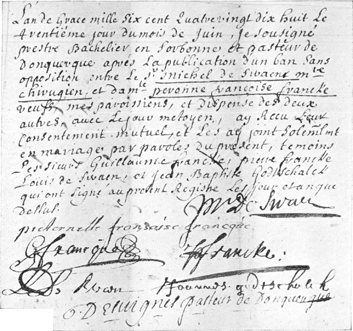 L'an de Grace mille Six cent Quatrevingt dix huit Le
trentième jour du mois de Juin, je soussigné
prestre Bachelier en Sorbonne et pasteur de
Donquerque après La publication d'un ban Sans
opposition entre Le Sr Michel de Swaene mtre
chirugien, et dam.le pevonne francoise francke
veufs, mes paroissiens, et dispense des deux
autres, avec Le jour moyen, ay Receu Leur
Consentement mutuel, et Les ay joint Solemlmt
en mariage par paroles du present, temoins
Les Sieurs Guillaume francke, pierre francke
Louis de Swaens, et jean Baptiste Godtschalck
qui ont Signé au present Registre Les jour et an que
dessus.
M. D. Swaen
pieternelle francoise francque
francque francke
de Swaen Joannes godtschalck
pasteur de Donquerque